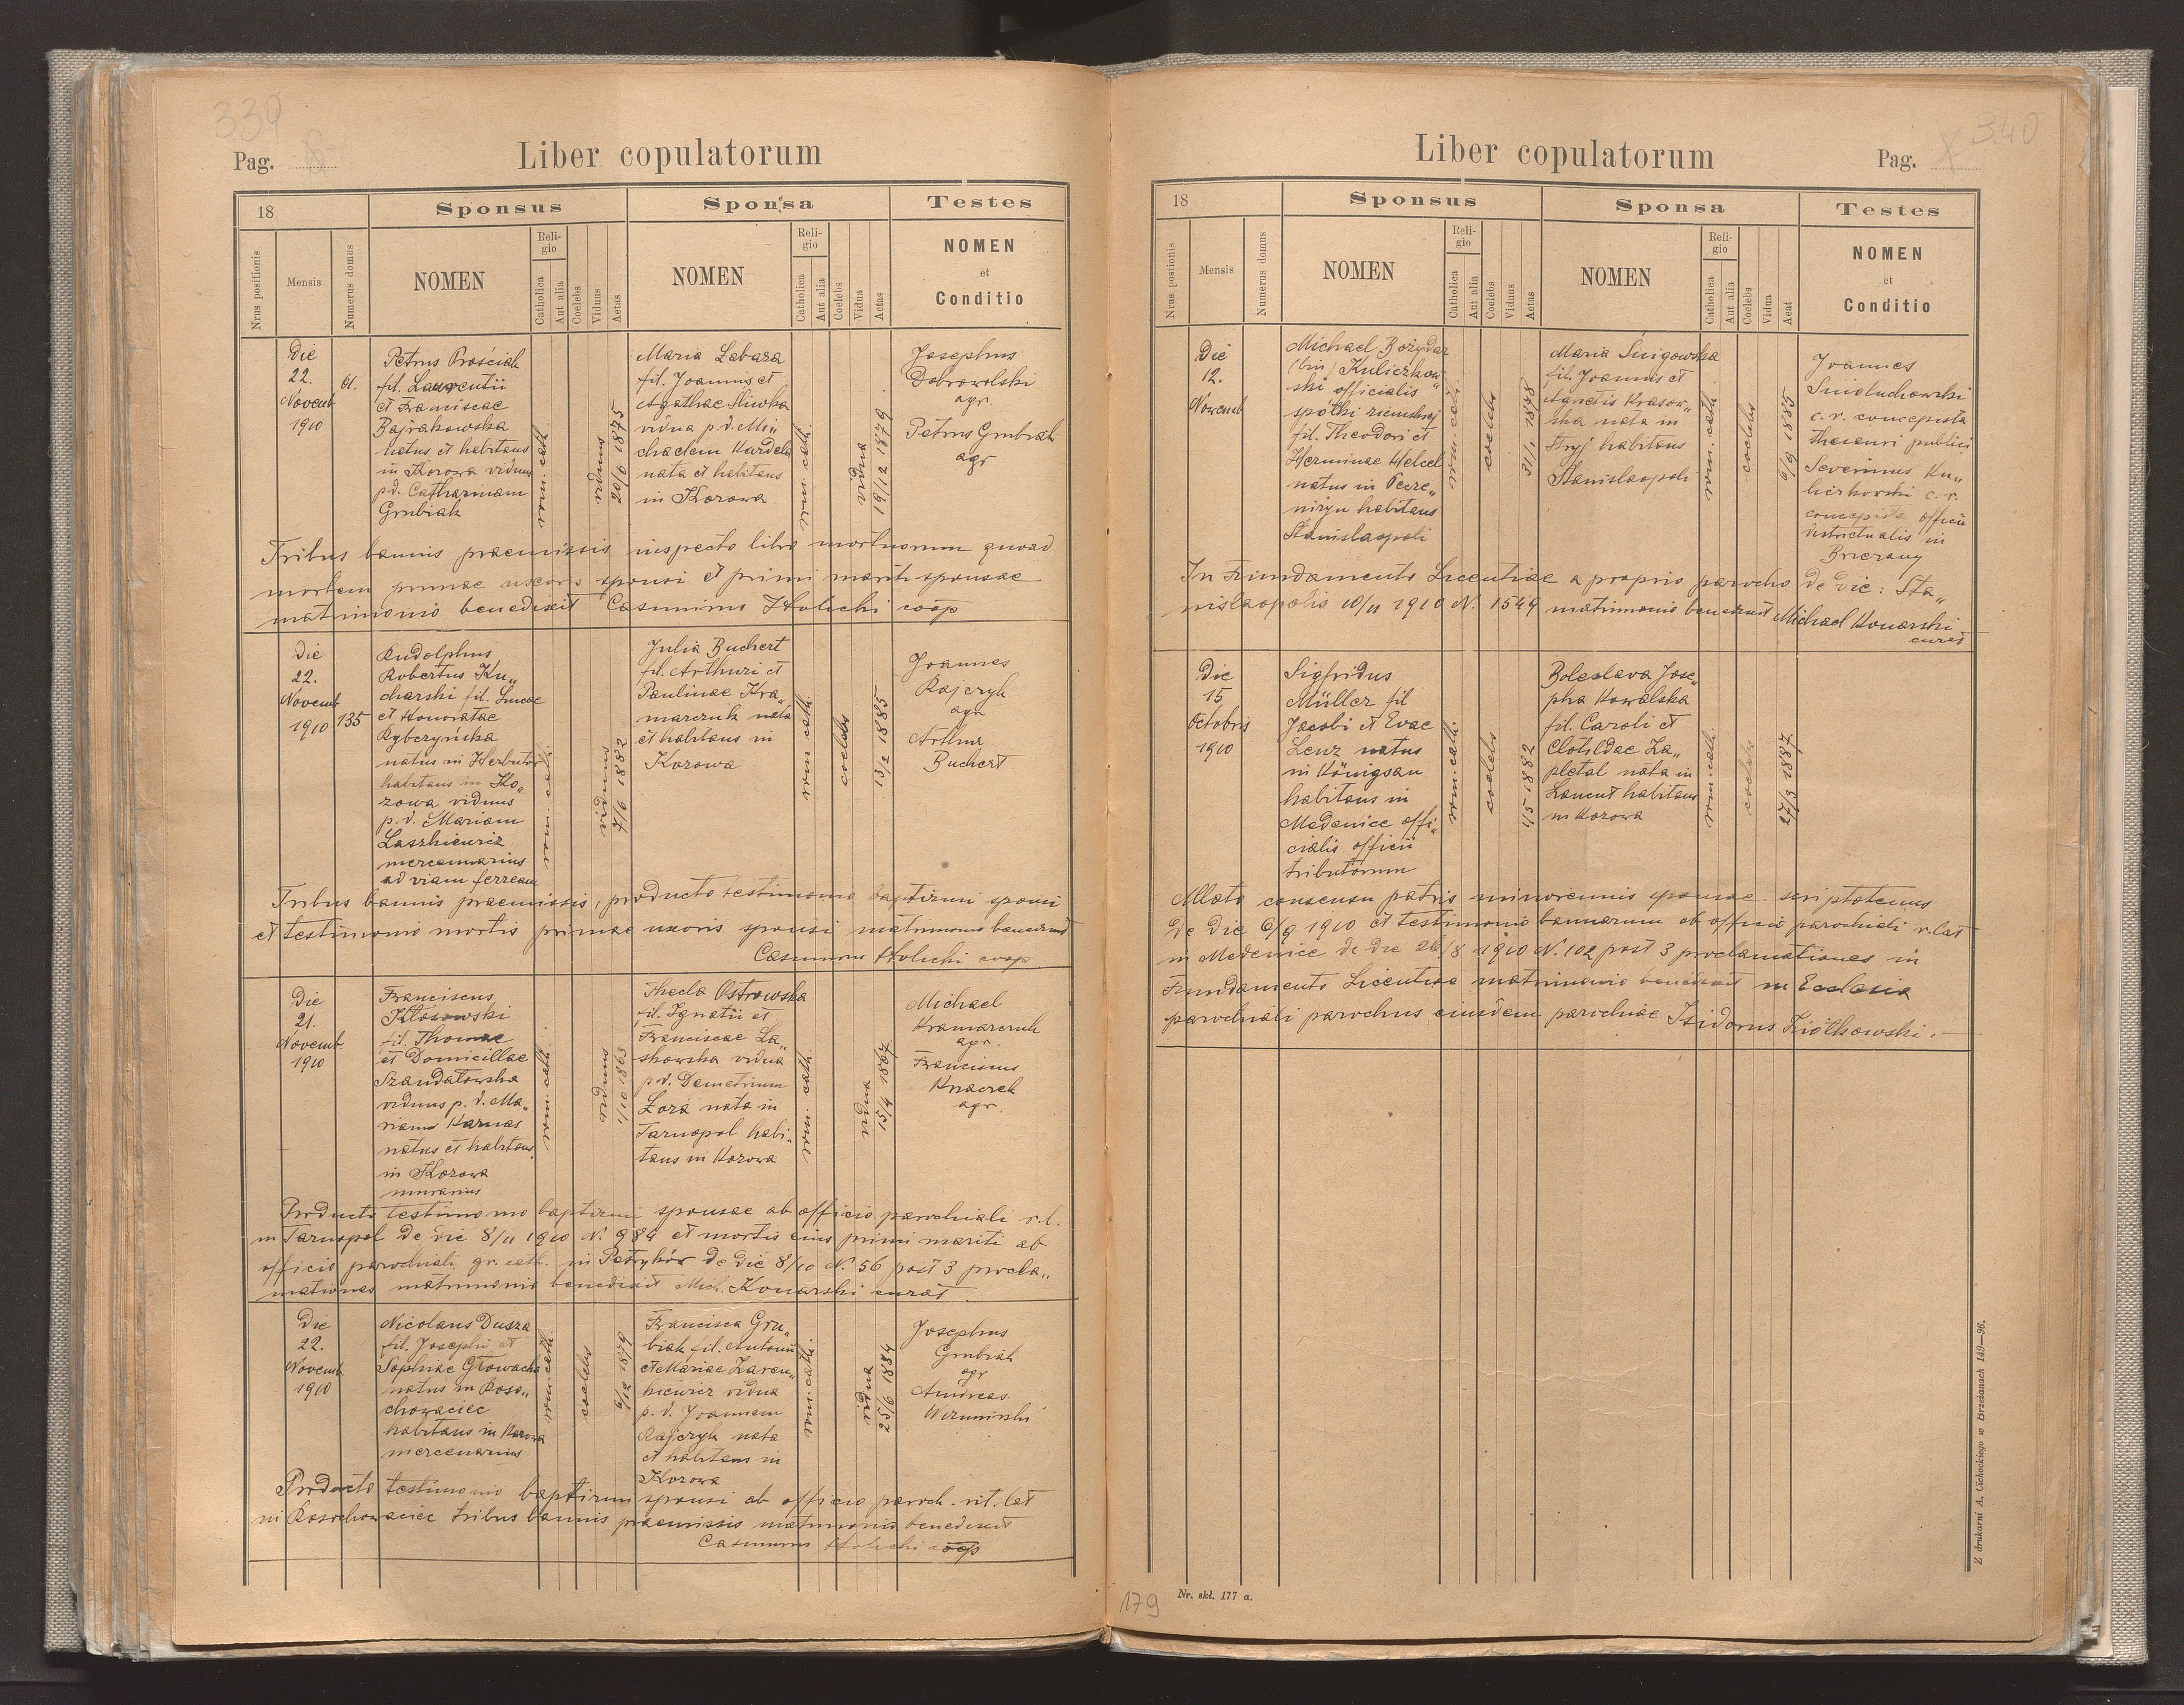 339
Pag.
Liber copulatorum
18
Sponsus
Sponsa
Testes
Nrus positionis
Mensis
Numerus domus
NOMEN
Reli-
gio
Catholica
Aut alia
Coelebs
Viduus
Aetas
NOMEN
Reli-
gio
Catholica
Aut alia
Coelebs
Vidua
Aetas
NOMEN
et
Conditio
Die
22.
Novemb
1910
Petrus Prościak
fil. Laurentii
et Franciscae
Bajrakowska
natus et habitans
in Kozowa viduus
p.d. Catharinam
Grubiak
rom. cath.
viduus
20/6 1875
Maria Labaza
fil. Joannis et
Agathae Śliwka
vidua p.d. Mi„
chaelem Kardela
nata et habitans
in Kozowa
rom. cath.
vidua
19/12 1879
Josephus
Dobrowolski
agr.
Petrus Grubiak
agr
Tribus bannis praemissis inspecto libro mortuorum quoad
mortem primae uxoris sponsi et primi mariti sponsae
matrimonio benedixit Casimirus Holicki coop
Die
22.
Novemb
1910
135
Rudolphus
Robertus Ku„
charski fil. Lucae
et Honoratae
Rybczyńska
natus in Herbutów
habitans in Ko„
zowa viduus
p.d. Mariam
Laszkiewicz
mercennarius
ad viam ferream
rom. cath.
viduus
7/6 1882
Julia Buchert
fil. Arthuri et
Paulinae Kra„
marczuk nata
et habitans in
Kozowa
rom cath.
coelebs
13/2 1885
Joannes
Rajczyk
agr
Arthur
Buchert
Tribus bannis praemissis, producto testimonio baptismi sponsi
et testimonio mortis primae uxoris sponsi matrimonio benedixit
Casimirus Holicki coop
Die
21.
Novemb.
1910
Franciscus
Kłosowski
fil. Thomae
et Domicillae
Szandałowska
viduus p.d. Ma„
riam Karnas
natus et habitans
in Kozowa
murarius
rom. cath.
viduus
1/10 1863
Thecla Ostrowska
fil. Ignatii et
Franciscae La„
skowska vidua
p.d. Demetrium
Łoza nata in
Tarnopol habi„
tans in Kozowa
rom. cath.
vidua
15/4 1867
Michael
Kramarczuk
agr.
Franciscus
Knaczek
agr.
Producto testimonio baptismi sponsae ab officio parochiali r.l.
in Tarnopol de die 8/11 1910 N. 984 et mortis eius primi mariti ab
officio parochiali gr. cath. in Petryków de die 8/10 N. 56 post 3 procla„
mationes matrimonio benedixit Mich. Konarski curat.
Die
22.
Novemb
1910
Nicolaus Dusza
fil. Josephi et
Sophiae Głowacka
natus in Roso„
chowaciec
habitans in Kozowa
mercenarius
rom. cath.
coelebs
6/12 1879
Francisca Gru„
biak fil. Antonii
et Mariae Lazen„
kiewicz vidua
p.d. Joannem
Rajczyk nata
et habitans in
Kozowa
rom. cath.
vidua
25/6 1884
Josephus
Grubiak
agr
Andreas
Producto testimonio baptismi sponsi ab officio paroch. rit. lat
in Rosochowaciec tribus bannis praemissis matrimonio benedixit
Casimirus Holicki coop
340
Liber copulatorum
Pag.
18
Sponsus
Sponsa
Testes
Nrus postionis
Mensis
Numerus domus
NOMEN
Reli-
gio
Catholica
Aut alia
Coelebs
Viduus
Aetas
NOMEN
Reli-
gio
Catholica
Aut alia
Coelebs
Vidua
Aeat
NOMEN
et
Conditio
Die
12.
Novemb
Michael Bożydar
(bin) Kuliczkow„
ski officialis
spółki ziemskiej
fil. Theodori et
Herminae Helcel
natus in Pecze„
niżyn habitans
Stanislaopoli
rom. cath.
coelebs
31/1 1878
Maria Śnigowska
fil. Joannis et
Agnetis Krasow„
ska nata in
Stryj habitans
Stanislaopoli
rom. cath.
coelebs
6/9 1885
Joannes
Smoluchowski
c.r. concepista
thesauri publici
Severinus Ku„
c.r.
concepista officii
districtualis in
Brzezany
In Fundamento Licentiae a proprio parocho de die: Sta„
nislaopolis 10/11 1910 N. 1549 matrimonio benedixit Michael Konarski
curat
Die
15
Octobris
1910
Sigfridus
Müller fil
Jacobi et Evae
Lenz natus
in Königsau
habitans in
Medenice offi„
cialis officii
tributorum
rom. cath.
coelebs
4/5 1882
Boleslava Jose„
pha Kowalska
fil. Caroli et
Clotildae Za„
pletal nata in
Lancut habitans
in Kozowa
rom. cath.
coelebs
27/3 1887
Allato consensu patris minorennis sponsae scriptotenus
de die 6/9 1910 et testimonio bannorum ab officio parochiali r. lat
in Medenice de die 26/8 1910 N. 102 post 3 proclamationes in
Fundamento Licentiae matrimonio benedixit in Ecclesia
parochiali parochus eiusdem parochiae Isidorus Ziółkowski.
Z drukarni A. Cichockiego w Brzeżanach 149—96.
179
Nr. skł. 177 a.